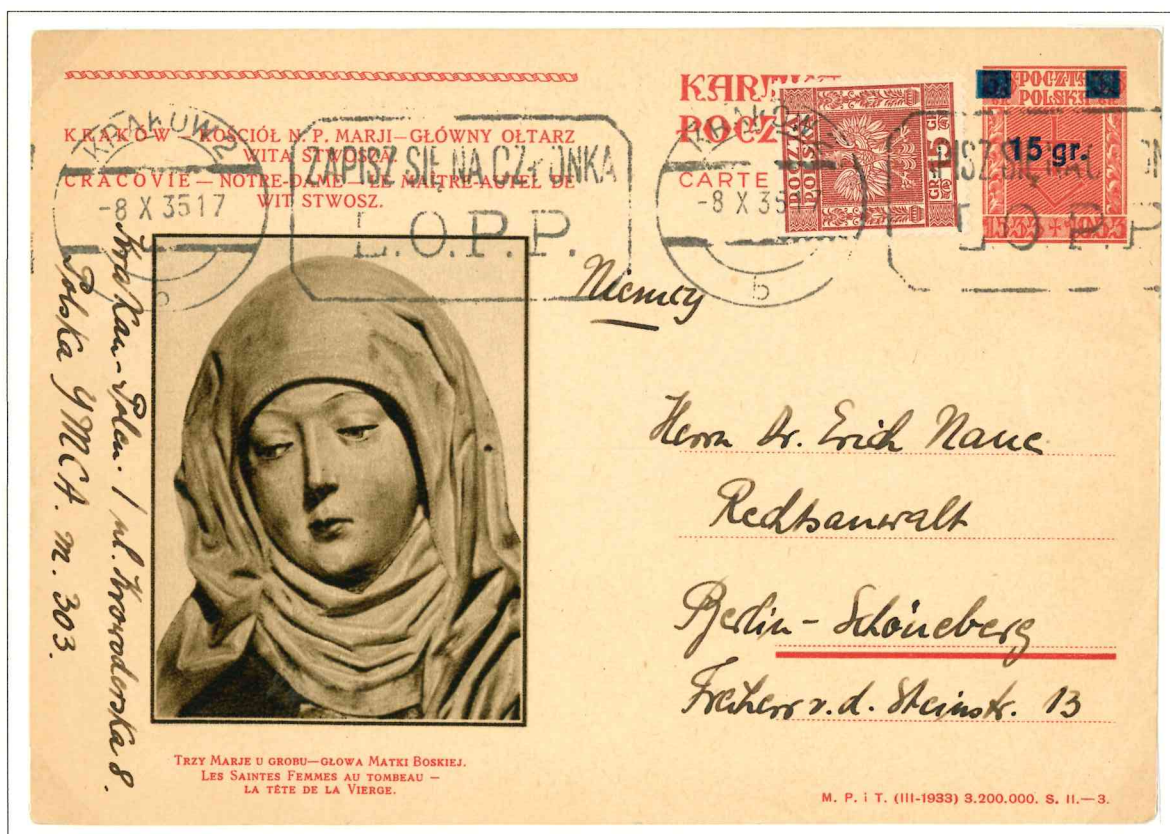 KRAKÓW — KOŚCIÓŁ N. P. MARJI—GŁÓWNY OŁTARZ
WITA STWOSZA.
CRACOVIE — NOTRE-DAME — LE MAITRE-AUTEL DE
WIT STWOSZ.
KRAKÓW 2
-8 X 35 17
b
ZAPISZ SIĘ NA CZŁONKA
L.O.P.P.
CARTE
POCZTA POLSKA
GR 15 GR
-8 X 35 17
b
POCZTA
POLSKA
15 gr.
L.O.P.P
Niemcy
Herrn Dr. Erich Naue
Rechtsanwalt
Berlin - Schöneberg
Freiherr v. d. Steinstr. 13
Krakau - Polen. / ul. Krowoderska 8.
Polska YMCA. m. 303.
TRZY MARJE U GROBU—GŁOWA MATKI BOSKIEJ.
LES SAINTES FEMMES AU TOMBEAU —
LA TÊTE DE LA VIERGE.
M. P. i T. (III-1933) 3.200.000. S. II.—3.